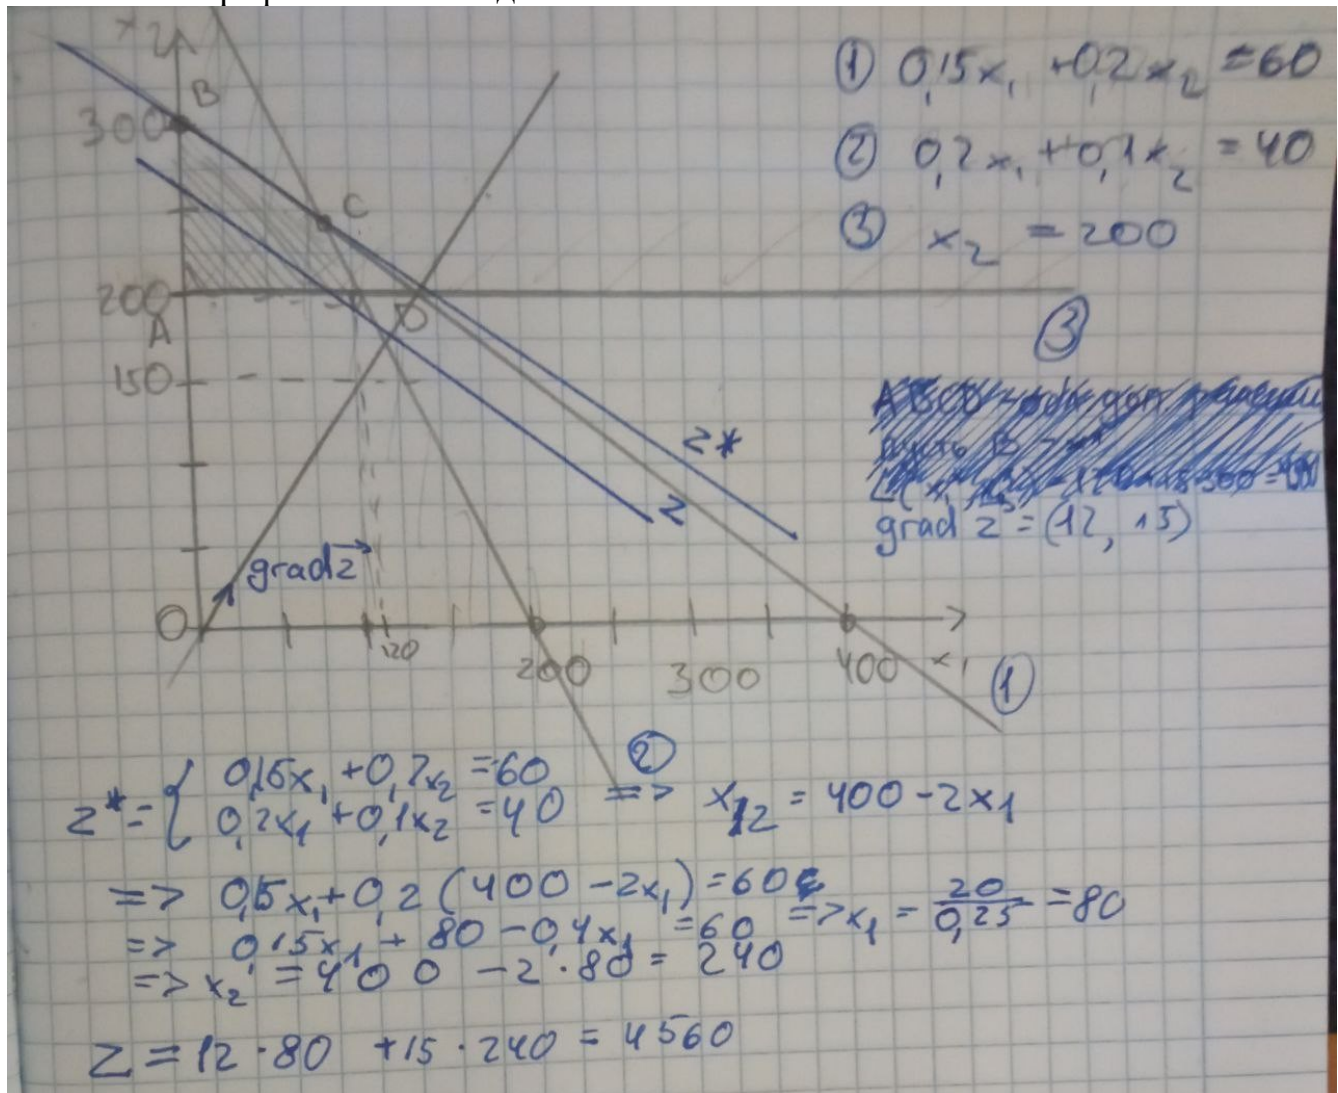 x2
B
300
C
200
A
D
150
z*
z
grad z
O
120
200
300
400
x₁
①
②
③
① 0,15x₁ + 0,2x₂ = 60
② 0,2x₁ + 0,1x₂ = 40
③ x₂ = 200
grad z = (12, 15)
z* = { 0,15x₁ + 0,2x₂ = 60
0,2x₁ + 0,1x₂ = 40 => x₂ = 400 - 2x₁
=> 0,15x₁ + 0,2 (400 - 2x₁) = 60
=> 0,15x₁ + 80 - 0,4x₁ = 60 => x₁ = 20/0,25 = 80
=> x₂ = 400 - 2 · 80 = 240
Z = 12 · 80 + 15 · 240 = 4560